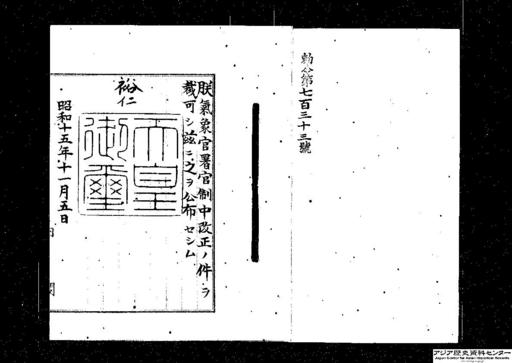 勅令第七百三十三號
朕氣象官署官制中改正ノ件ヲ
裁可シ茲ニ之ヲ公布セシム
裕仁
天皇御璽
昭和十五年十一月五日
内閣
アジア歴史資料センター
Japan Center for Asian Historical Records